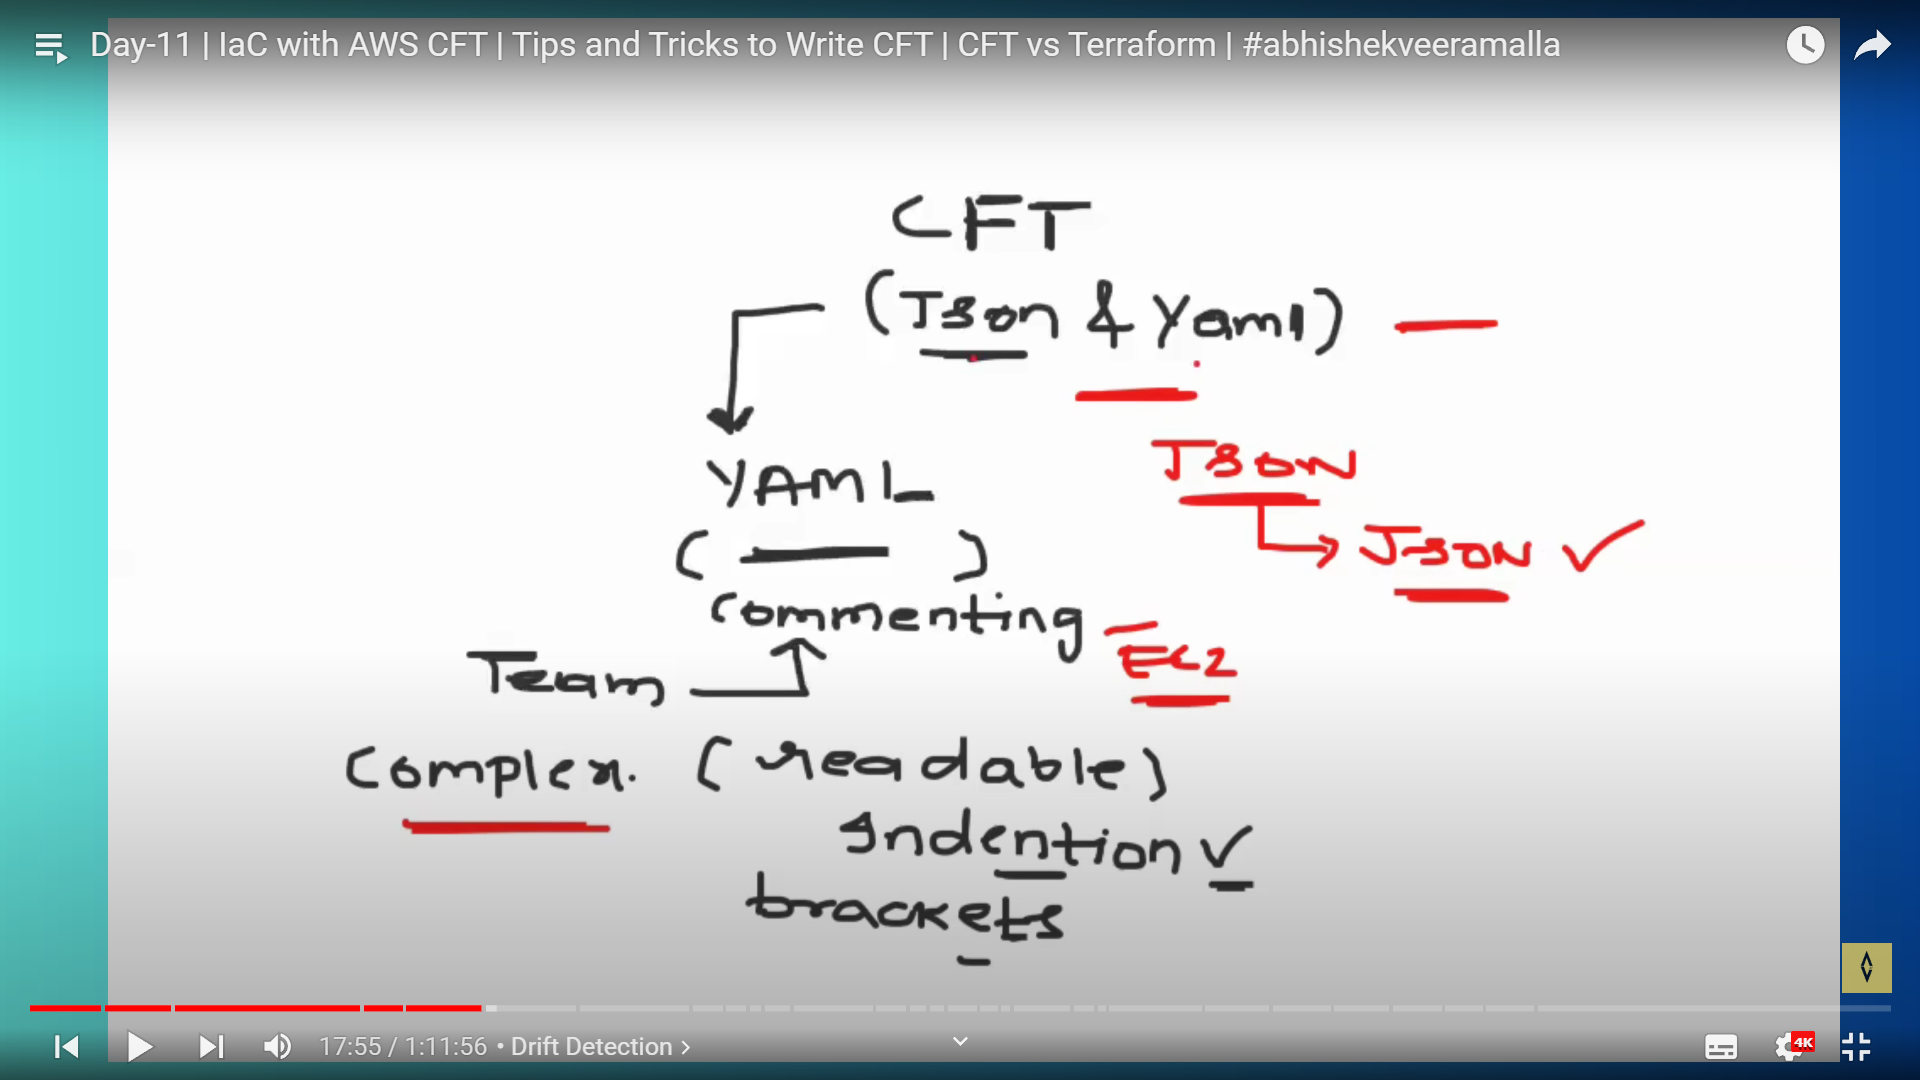 Day-11 | IaC with AWS CFT | Tips and Tricks to Write CFT | CFT vs Terraform | #abhishekveeramalla
CFT
(Json & Yaml)
YAML
JSON
JSON ✓
( )
Commenting
Team
EC2
Complex. (readable)
Indention ✓
brackets
17:55 / 1:11:56 • Drift Detection >
4K